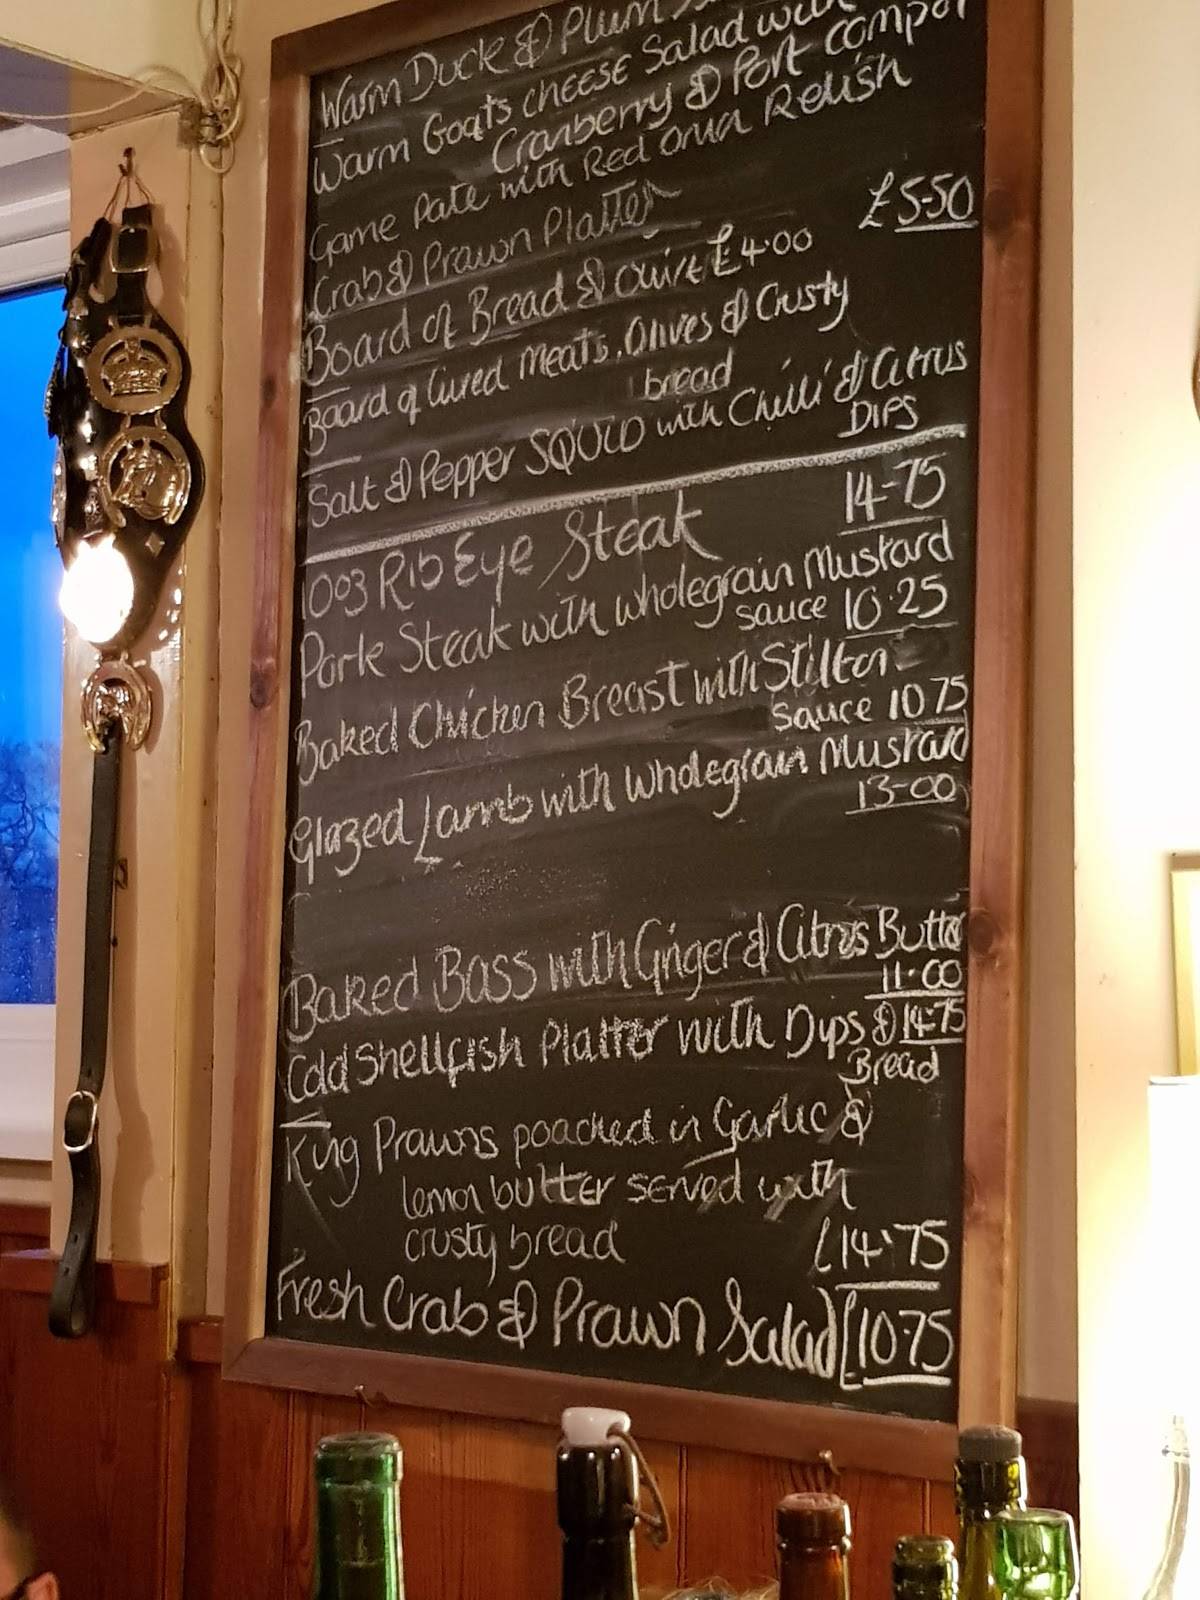 Warm Duck & Plum
Warm Goats cheese Salad with
Cranberry & Port compot
Game Pate with Red onion Relish
Crab & Prawn Platter
£5-50
Board of Bread & Olives £4.00
Board of Cured Meats, Olives & Crusty
bread
Salt & Pepper SQUID with Chilli & Citrus
DIPS
10oz Rib Eye Steak 14-75
Pork Steak with wholegrain Mustard
sauce 10.25
Baked Chicken Breast with Stilton
Sauce 10 75
Glazed Lamb with Wholegrain Mustard
13-00
Baked Bass with Ginger & Citrus Butter
11.00
Cold Shellfish Platter with Dips & 14-75
Bread
King Prawns poached in Garlic &
lemon butter served with
crusty bread £14.75
Fresh Crab & Prawn Salad £10-75